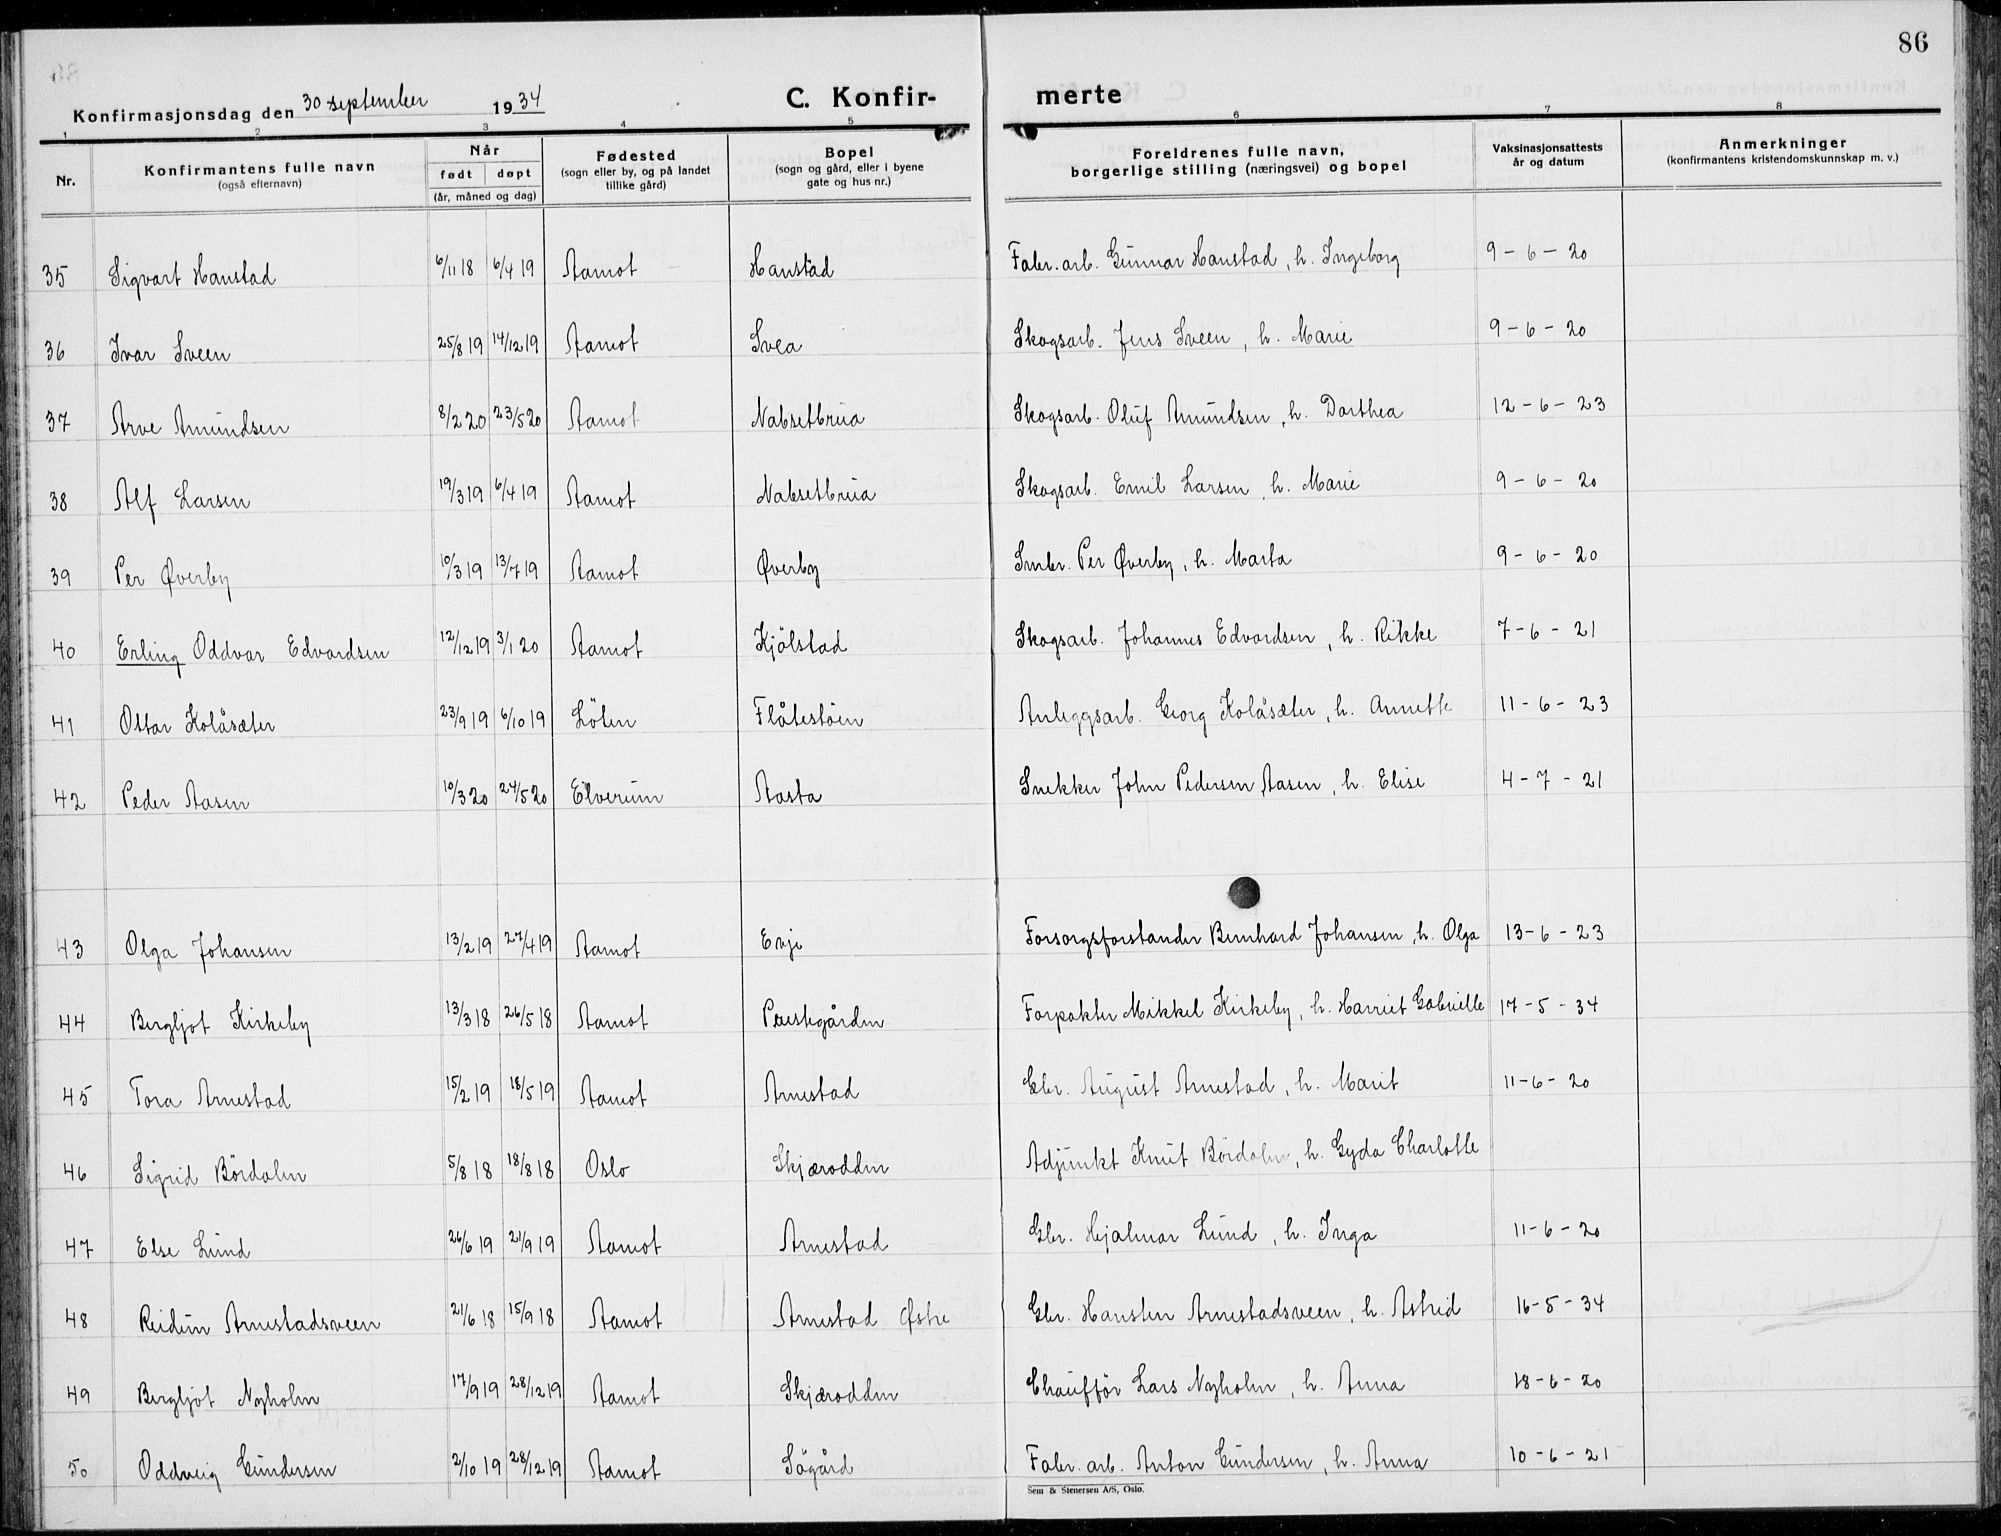 86
Konfirmasjonsdag den 30 september 1934 C. Konfir- merte
1 2 3 4 5 6 7 8
Nr. Konfirmantens fulle navn (også efternavn) Når født døpt (år, måned og dag) Fødested (sogn eller by, og på landet tillike gård) Bopel (sogn og gård, eller i byene gate og hus nr.) Foreldrenes fulle navn, borgerlige stilling (næringsvei) og bopel Vaksinasjonsattests år og datum Anmerkninger (konfirmantens kristendomskunnskap m. v.)
35 Sigvart Hanstad 6/11 18 6/4 19 Aamot Hanstad Fabr. arb. Gunnar Hanstad, h. Ingeborg 9-6-20
36 Ivar Sveen 25/8 19 14/12 19 Aamot Svea Skogsarb. Jens Sveen, h. Marie 9-6-20
37 Arve Amundsen 8/2 20 23/5 20 Aamot Nabsetbrua Skogsarb. Oluf Amundsen, h. Dorthea 12-6-23
38 Alf Larsen 19/3 19 6/4 19 Aamot Nabsetbrua Skogsarb. Emil Larsen, h. Marie 9-6-20
39 Per Øverby 10/3 19 13/7 19 Aamot Øverby Smbr. Per Øverby, h. Marta 9-6-20
40 Erling Oddvar Edvardsen 12/12 19 3/1 20 Aamot Kjölstad Skogsarb. Johannes Edvardsen, h. Rikke 7-6-21
41 Ottar Kolåsæter 23/9 19 6/10 19 Löten Flåtestöen Anleggsarb. Georg Kolåsæter, h. Annette 11-6-23
42 Peder Aasen 10/3 20 24/5 20 Elverum Aasta Snekker John Pedersen Aasen, h. Elise 4-7-21
43 Olga Johansen 13/2 19 27/4 19 Aamot Evje Forsorgsforstander Bernhard Johansen, h. Olga 13-6-23
44 Bergljot Kirkeby 13/3 18 26/5 18 Aamot Prestegården Forpakter Mikkel Kirkeby, h. Harriet Gabrielle 17-5-34
45 Tora Arnestad 15/2 19 18/5 19 Aamot Arnestad Gbr. August Arnestad, h. Marit 11-6-20
46 Sigrid Bördalen 5/8 18 18/8 18 Oslo Skjærodden Adjunkt Knut Bördalen, h. Gyda Charlotte
47 Else Lund 26/6 19 21/9 19 Aamot Arnestad Gbr. Hjalmar Lund, h. Inga 11-6-20
48 Reidun Arnestadsveen 21/6 18 15/9 18 Aamot Arnestad Østre Gbr. Hansten Arnestadsveen, h. Astrid 16-5-34
49 Bergljot Nyholm 17/9 19 28/12 19 Aamot Skjærodden Chaufför Lars Nyholm, h. Anna 18-6-20
50 Oddveig Gundersen 2/10 19 28/12 19 Aamot Sögård Fabr. arb. Anton Gundersen, h. Anna 10-6-21
Sem & Stenersen A/S, Oslo.